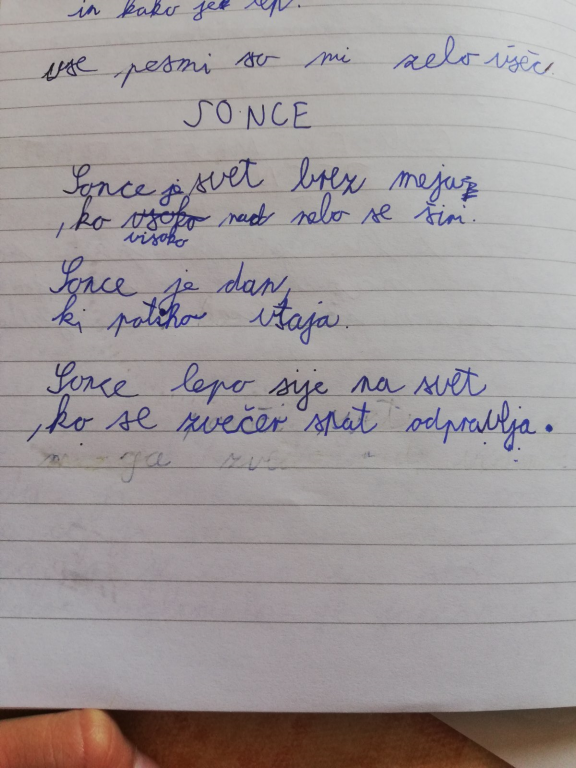 in kako je lep.
vse pesmi so mi zelo všeč.
SONCE
Sonce je svet brez meja
, ko visoko nad nebo se širi.
Sonce je dan,
ki potiho vstaja.
Sonce lepo sije na svet
, ko se zvečer spat odpravlja.